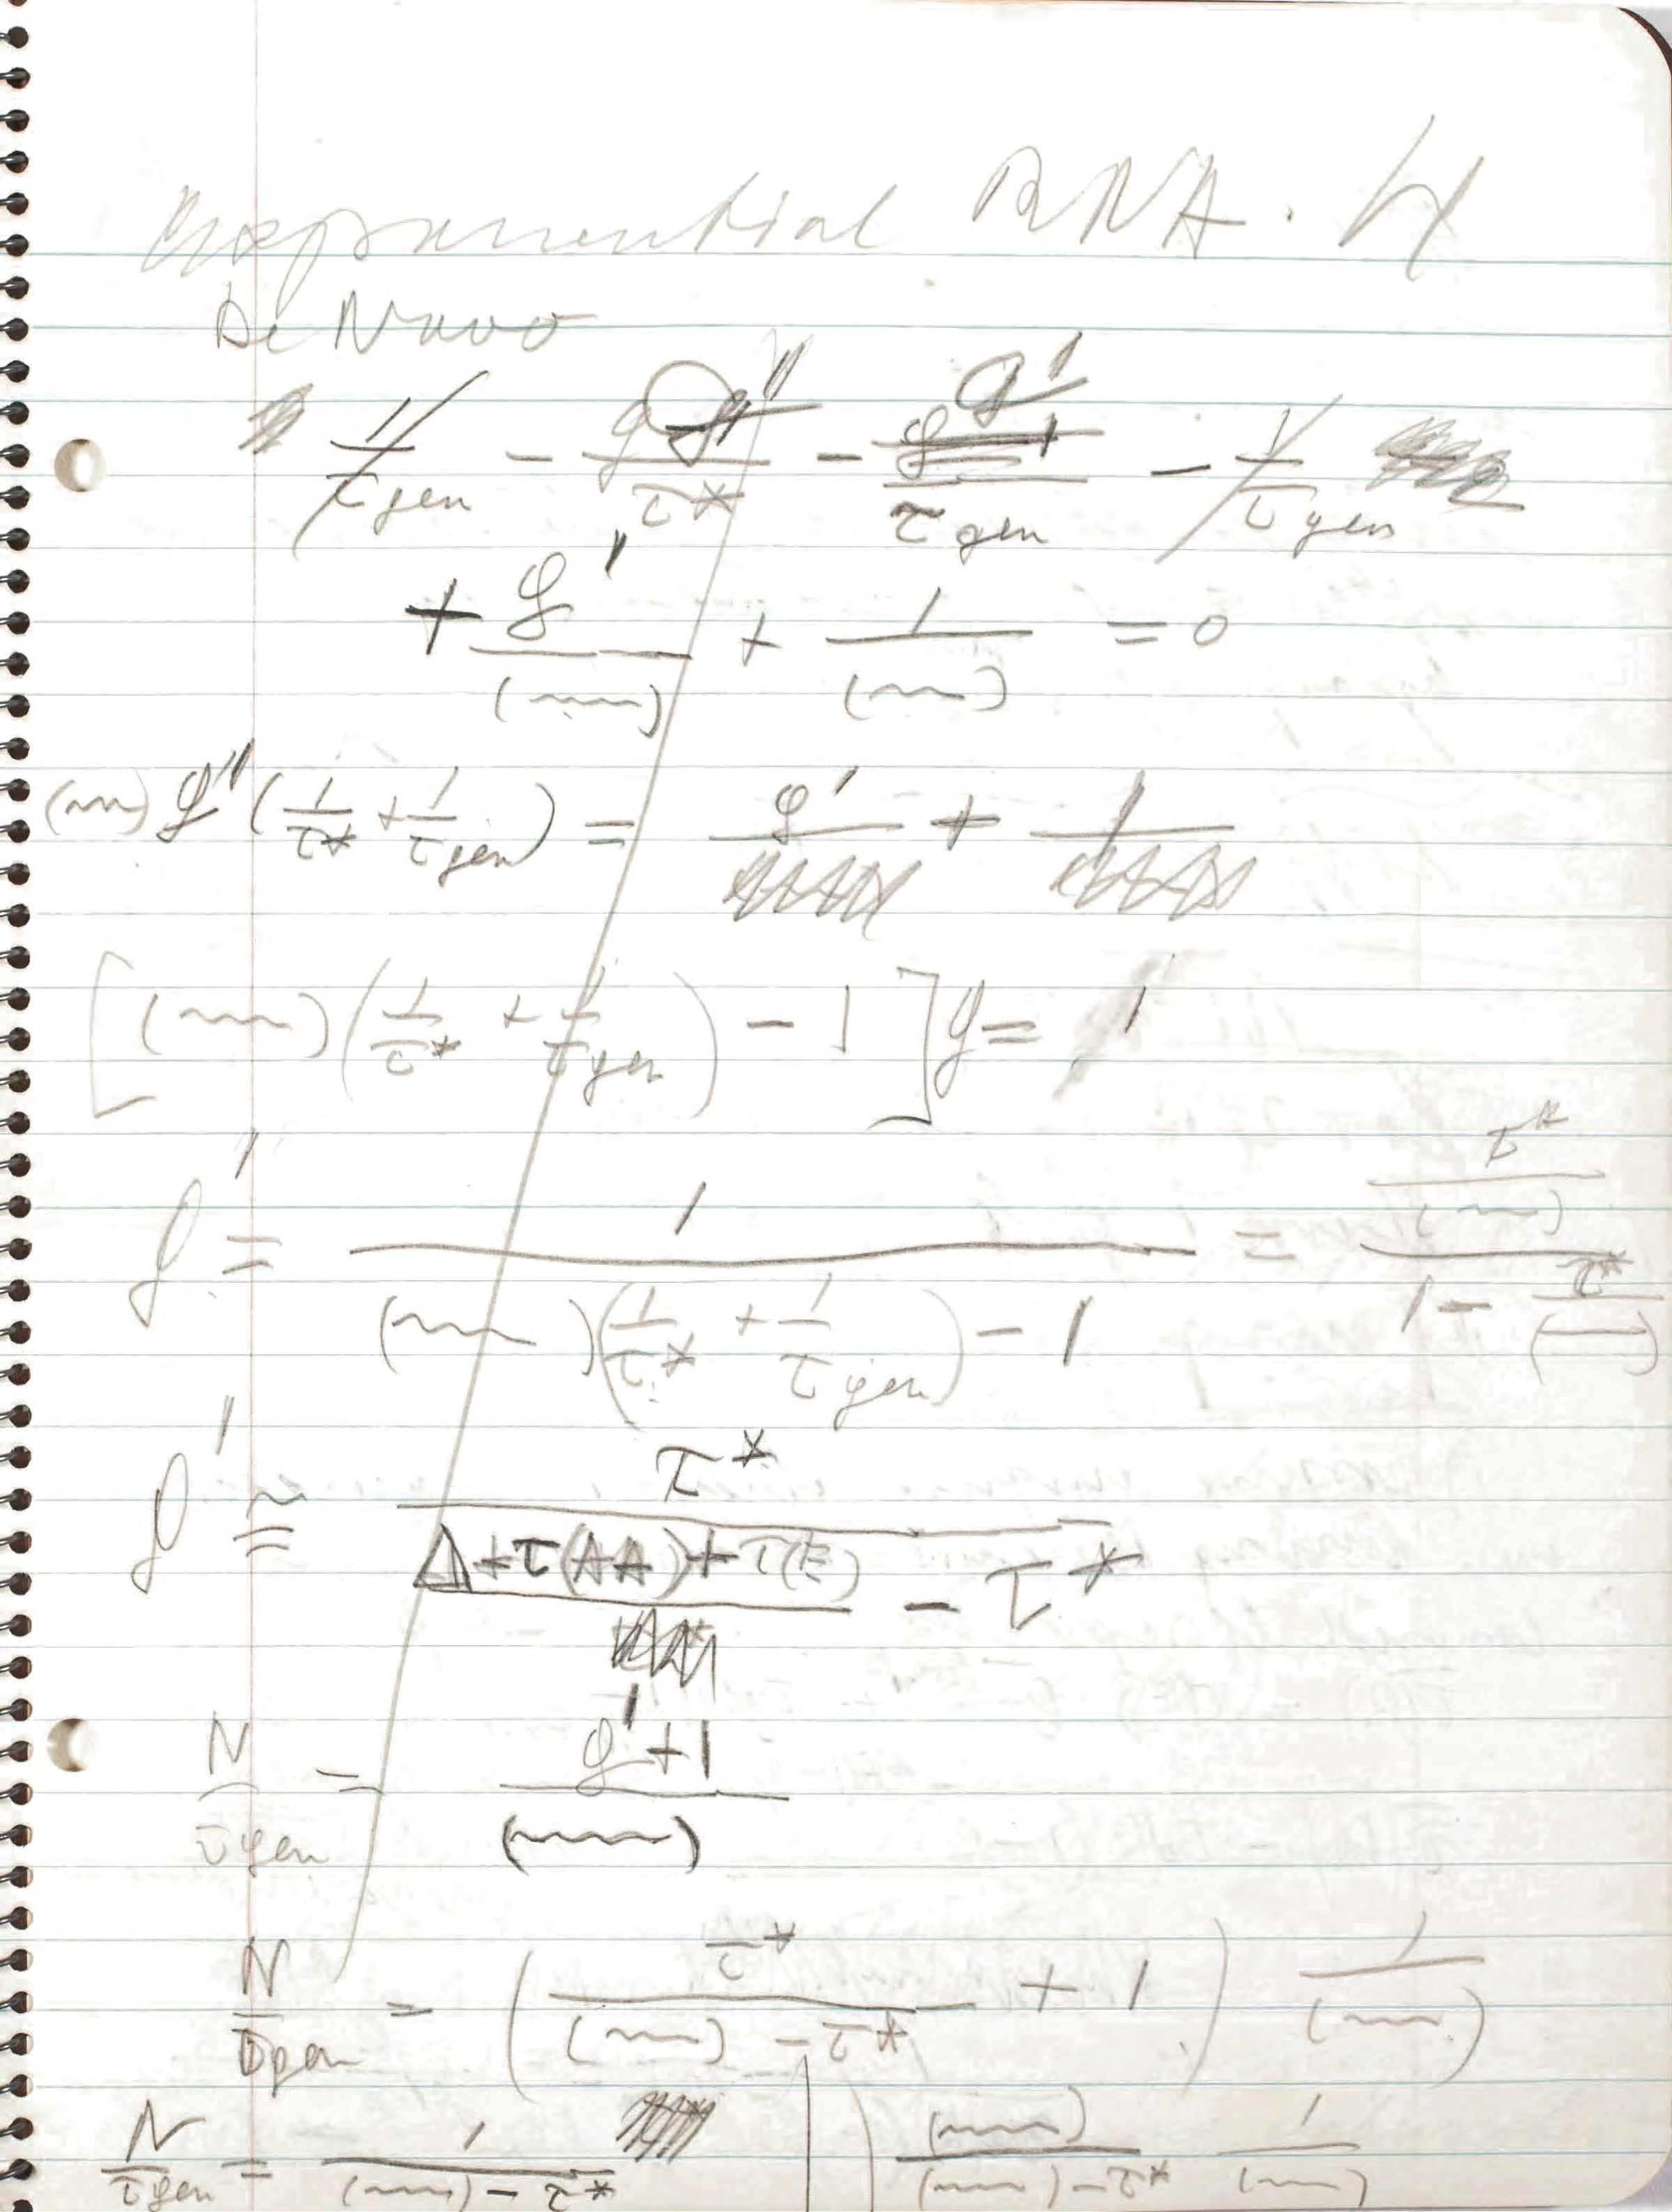 exponential RNA. 4
De Novo
1/τgen - g''/τ* - g'/τgen - 1/τgen
+ g''/(~~~) + 1/(~~~) = 0
(~~~) g'' (1/τ* + 1/τgen) = g' + 1
[(~~~)(1/τ* + 1/τgen) - 1] g = 1
g' = 1/((~~~)(1/τ* + 1/τgen) - 1) = (τ*/(~~~))/(1 - τ*/(~~~))
g' ≅ τ*/(Δ + τ(AA) + τ(E) - τ*)
N/τgen = (g' + 1)/(~~~)
N/τgen = (τ*/((~~~) - τ*) + 1) 1/(~~~)
N/τgen = 1/((~~~) - τ*) | (~~~)/((~~~) - τ*) 1/(~~~)